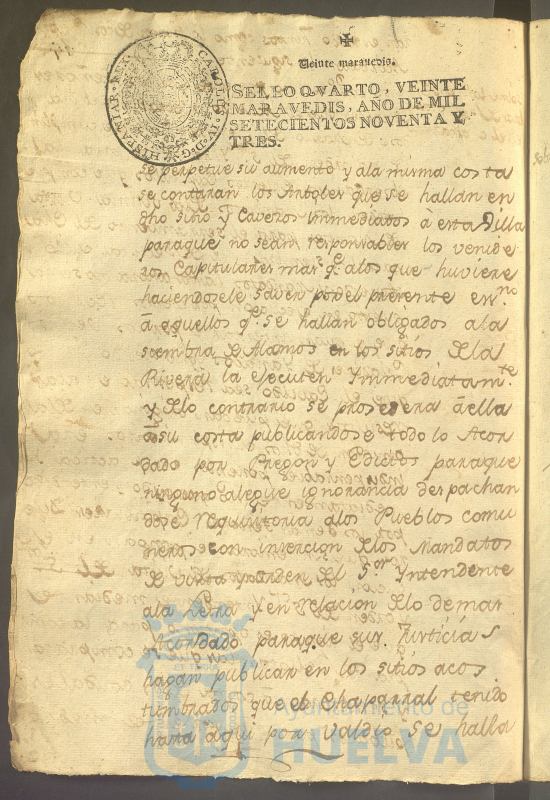 Veinte maravedis.
SELLO QVARTO, VEINTE
MARAVEDIS, AÑO DE MIL
SETECIENTOS NOVENTA Y
TRES.
CAROLUS IV D G HISPANIAR REX
se perpetue su aumento y ala misma costa
se contaran los Arboles que se hallan en
dho sitio y Caveros Immediatos à esta Villa
paraque no sean responsables los venide
ros Capitulares mas q.e alos que huviere
haciendosele saver por el presente es.no
â aquellos q.e se hallan obligados ala
siembra de Alamos en los sitios dela
Rivera la executen Immediatam.te
y delo contrario se prosedera â ella
a su costa publicandose todo lo Acor
dado por Pregon y Edictos paraque
ninguno alegue ignorancia despachan
dose Requisitoria alos Pueblos comu
neros con insercion delos Mandatos
de visita y orden del S.or Intendente
ala letra y en relacion delo demas
Acordado paraque sus Justicias
hagan publicar en los sitios acos
tumbrados que el Chaparral tenido
hasta aqui por valdio se halla
Ayuntamiento de
HUELVA